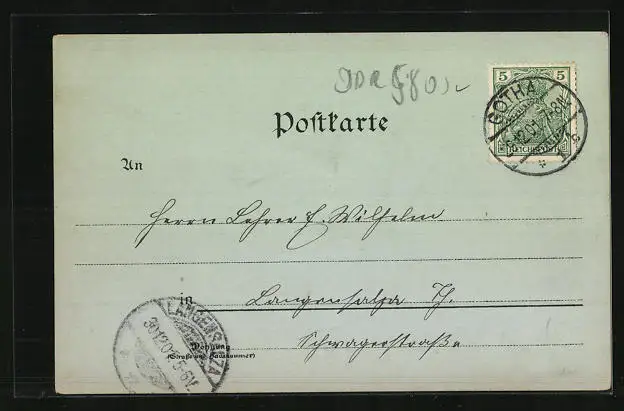 5 5
REICHSPOST
GOTHA
12.01. 7-8N.
Postkarte
An
Herrn Lehrer E. Wilhelm
in Langensalza Th.
Schwagerstraße
Wohnung
(Straße und Hausnummer)
LANGENSALZA
30.12.01. 5-6N.